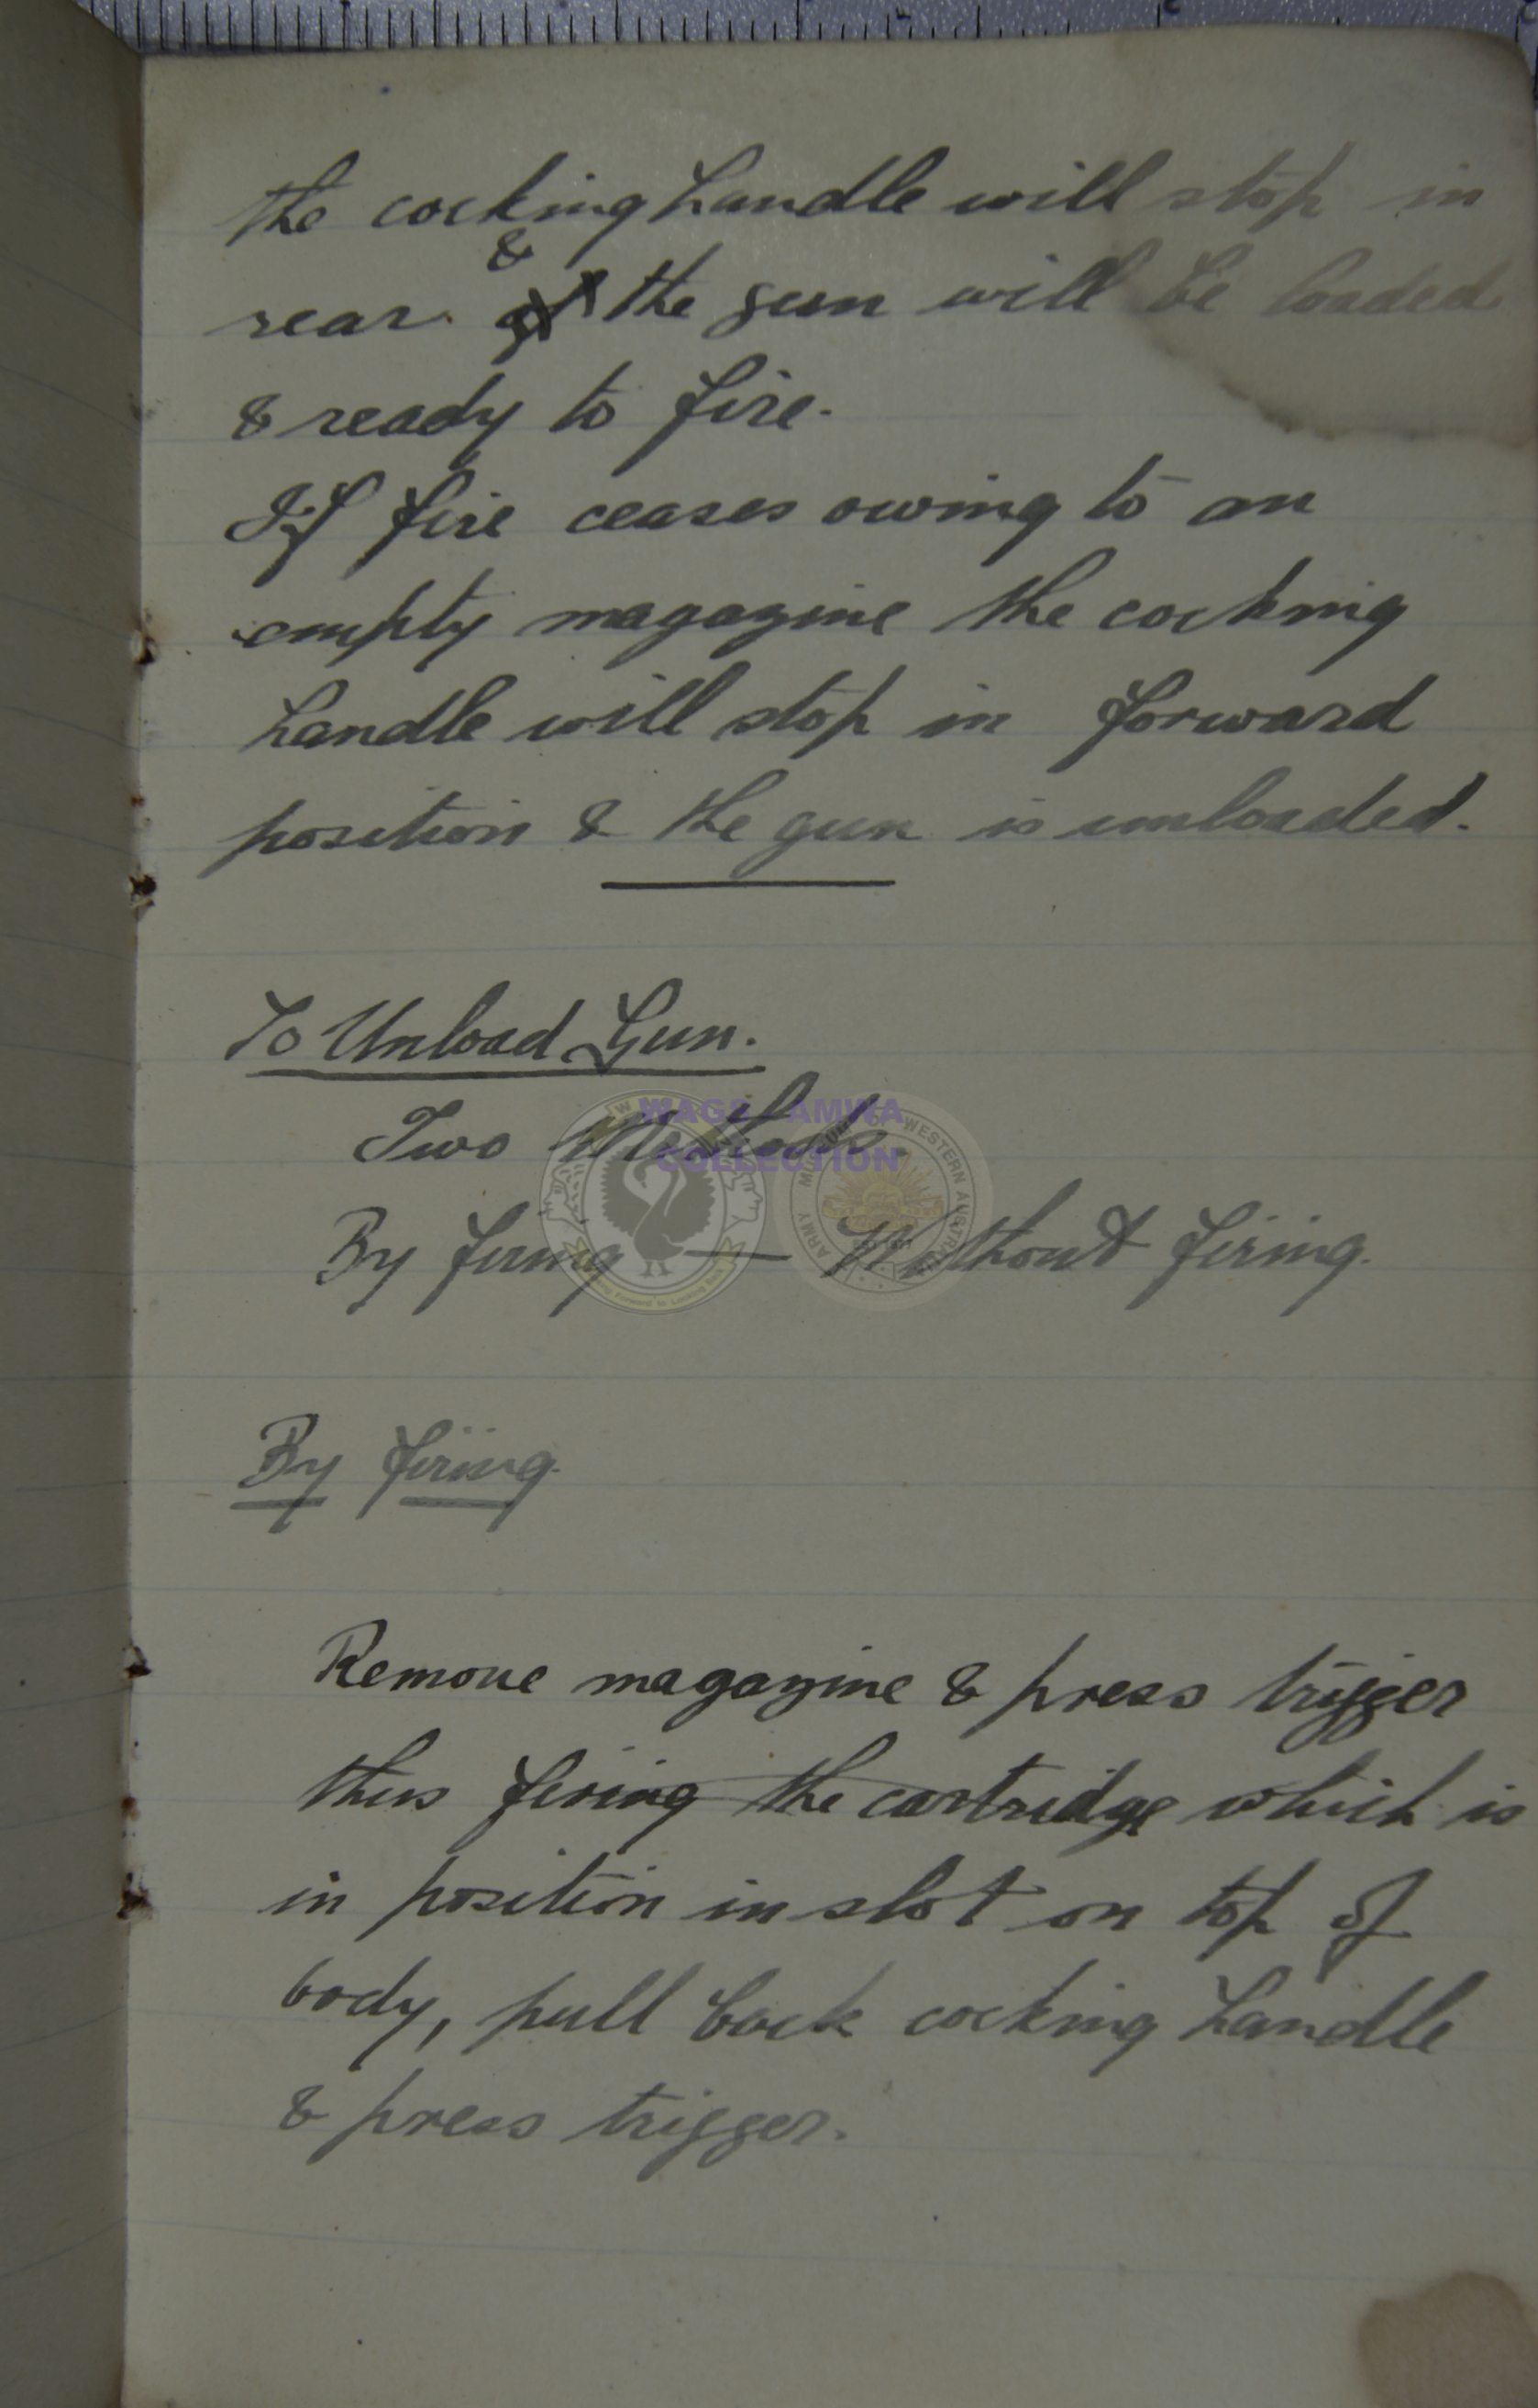 the cocking handle will stop in
&
rear of the gun will be loaded
& ready to fire.
If fire ceases owing to an
empty magazine the cocking
handle will stop in forward
position & the gun is unloaded.
To Unload Gun.
Two Methods.
By firing — Without firing.
By firing.
Remove magazine & press trigger
thus firing the cartridge which is
in position in slot on top of
body, pull back cocking handle
& press trigger.
WAGS AMWA
COLLECTION
ARMY MUSEUM OF WESTERN AUSTRALIA